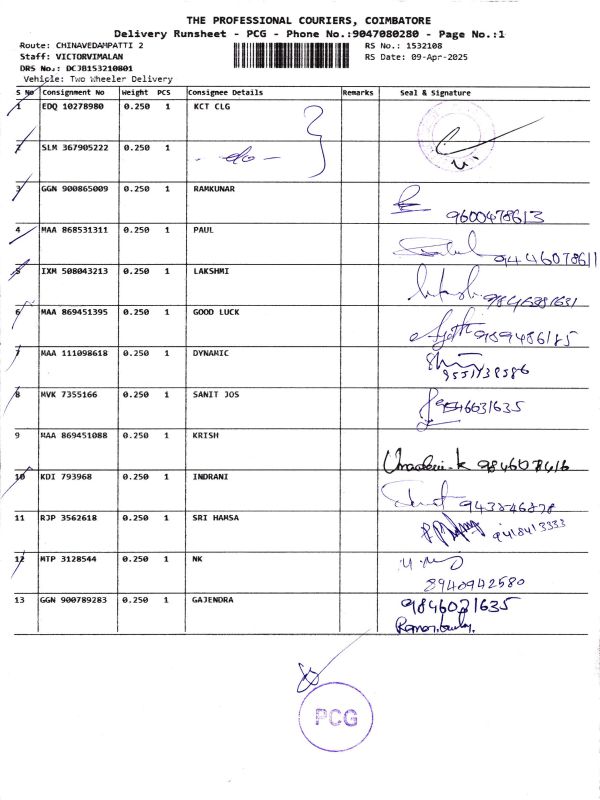 THE PROFESSIONAL COURIERS, COIMBATORE
Delivery Runsheet - PCG - Phone No.:9047080280 - Page No.:1
Route: CHINAVEDAMPATTI 2 RS No.: 1532108
Staff: VICTORVIMALAN RS Date: 09-Apr-2025
DRS No.: DCJB153210801
Vehicle: Two Wheeler Delivery
S No Consignment No Weight PCS Consignee Details Remarks Seal & Signature
1 EDQ 10278980 0.250 1 KCT CLG
2 SLM 367905222 0.250 1 - do -
3 GGN 900865009 0.250 1 RAMKUNAR
9600478613
4 MAA 868531311 0.250 1 PAUL
9446078611
5 IXM 508043213 0.250 1 LAKSHMI
6 MAA 869451395 0.250 1 GOOD LUCK
7 MAA 111098618 0.250 1 DYNAMIC
8 MVK 7355166 0.250 1 SANIT JOS
9 MAA 869451088 0.250 1 KRISH
10 KDI 793968 0.250 1 INDRANI
11 RJP 3562618 0.250 1 SRI HAMSA
9418413333
12 MTP 3128544 0.250 1 NK
8940942580
13 GGN 900789283 0.250 1 GAJENDRA
PCG